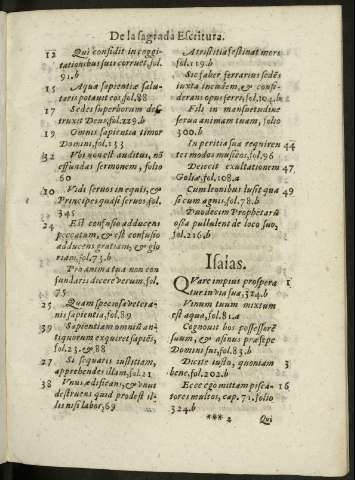 De la sagrada Escritura.
12 Qui confidit in cogitationibus
suis corruet, fol.
91.b
15 Aqua sapientiæ salutaris
potauit eos, fol.88
17 Sedes superborum destruxit
Deus, fol.229.b
19 Omnis sapientia timor
Domini, fol.133
32 Vbi non est auditus, nõ
effundas sermonem, folio
60
10 Vidi seruos in equis, &
Principes quasi seruos, fol.
345
24 Est confusio adducens
peccatum, & est confusio
adducens gratiam, & gloriam,
fol.73.b
Pro anima tua non confundaris
dicere verum, fol.
75
25 Quam speciosa veteranis
sapientia, fol.89
39 Sapientiam omniũ antiquorum
exquiret sapiẽs,
fol.23.&88
27 Si sequaris iustitiam,
apprehendes illam, fol.21
38 Vnus ædificans, & vnus
destruens quid prodest illis
nisi labor, 69
A tristitia festinat mors
fol.119.b
Sic faber ferrarius sedẽs
iuxta incudem, & considerans
opus ferri, fol.104.b
Fili in mansuetudine
serua animam tuam, folio
300.b
In peritia sua requirentes 44
modos musicos, fol.96
Deiecit exultationem 47
Goliæ, fol.108.a
Cum leonibus lusit quasi 49
cum agnis, fol.78.b
Duodecim Prophetarũ
ossa pullulent de loco suo,
fol.226.b
Isaias.
QVare impius prospera 1
tur in via sua, 324.b
Vinum tuum mixtum
est aqua, fol.81.a
Cognouit bos possessorẽ
suum, & asinus præsepe
Domini sui, fol.83.b
Dicite iusto, quoniam 3
bene, fol.202.b
Ecce ego mittam piscatores 16
multos, cap.71. folio
324.b
*** 2 Qui